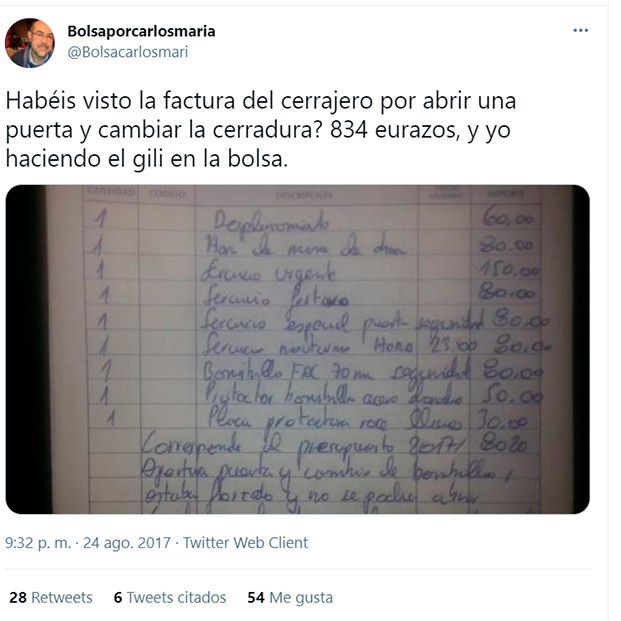 Bolsaporcarlosmaria
@Bolsacarlosmari
Habéis visto la factura del cerrajero por abrir una
puerta y cambiar la cerradura? 834 eurazos, y yo
haciendo el gili en la bolsa.
CANTIDAD CODIGO DESCRIPCIÓN IMPORTE
1 Desplazamiento 60,00
1 de mano de obra 80.00
1 urgente 150,00
1 Servicio festivo 80.00
1 Servicio especial puerta seguridad 80.00
1 Servicio nocturno Hora 23:00 80,00
1 Bombillo FAC 70 mm seguridad 80,00
1 Protector bombillo acero 50,00
1 Placa protectora llaves 30,00
Corresponde al presupuesto 2017/ 8020
Apertura puerta y cambio de bombillo,
estaba y no se podia abrir
9:32 p. m. · 24 ago. 2017 · Twitter Web Client
28 Retweets 6 Tweets citados 54 Me gusta